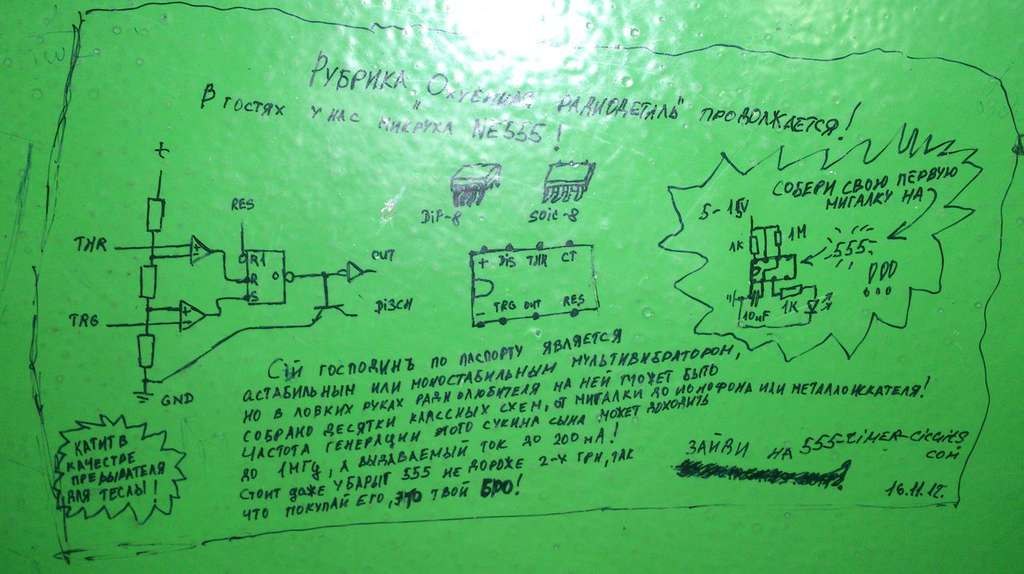 РУБРИКА "ОХУЕННАЯ РАДИОДЕТАЛЬ" ПРОДОЛЖАЕТСЯ!
В ГОСТЯХ У НАС МИКРУХА NE555!
DiP-8
SOiC-8
+
RES
THR
TRG
R1
R
S
OUT
DiSCH
GND
+ DiS THR CT
- TRG OUT RES
СОБЕРИ СВОЮ ПЕРВУЮ
МИГАЛКУ НА
555
5-15V
1K
1M
1K
10мF
СIЙ ГОСПОДИНЪ ПО ПАСПОРТУ ЯВЛЯЕТСЯ
АСТАБИЛЬНЫМ ИЛИ МОНОСТАБИЛЬНЫМ МУЛЬТИВИБРАТОРОМ,
НО В ЛОВКИХ РУКАХ РАДИОЛЮБИТЕЛЯ НА НЕЙ МОЖЕТ БЫТЬ
СОБРАНО ДЕСЯТКИ КЛАССНЫХ СХЕМ, ОТ МИГАЛКИ ДО ИОНОФОНА ИЛИ МЕТАЛЛОИСКАТЕЛЯ!
ЧАСТОТА ГЕНЕРАЦИИ ЭТОГО СУКИНА СЫНА МОЖЕТ ДОХОДИТЬ
ДО 1МГц, А ВЫДАВАЕМЫЙ ТОК ДО 200 мА!
СТОИТ ДАЖЕ У БАРЫГ 555 НЕ ДОРОЖЕ 2-Х ГРН, ТАК
ЧТО ПОКУПАЙ ЕГО, ЭТО ТВОЙ БРО!
КАТИТ В
КАЧЕСТВЕ
ПРЕРЫВАТЕЛЯ
ДЛЯ ТЕСЛЫ!
ЗАЙДИ НА 555-TiMER-CiRCUiTS
COM
16.11.12.